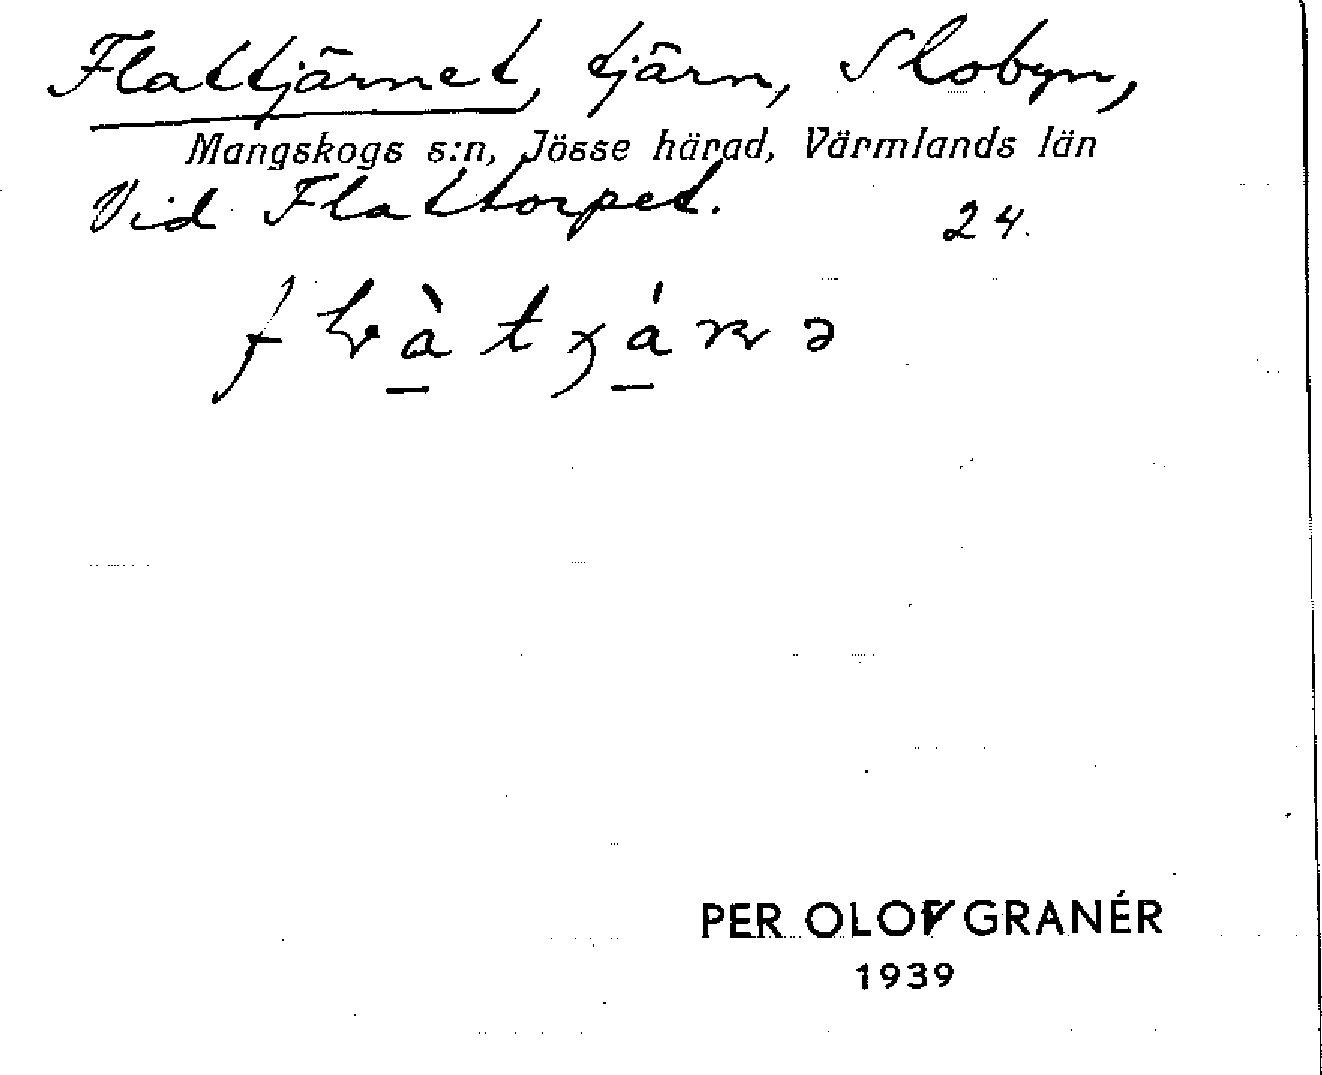 Flattjärnet, tjärn, Slobyn,
Mangskogs s:n, Jösse härad, Värmlands län
Vid Flattorpet.
24.
PER OLOF GRANÉR
1939